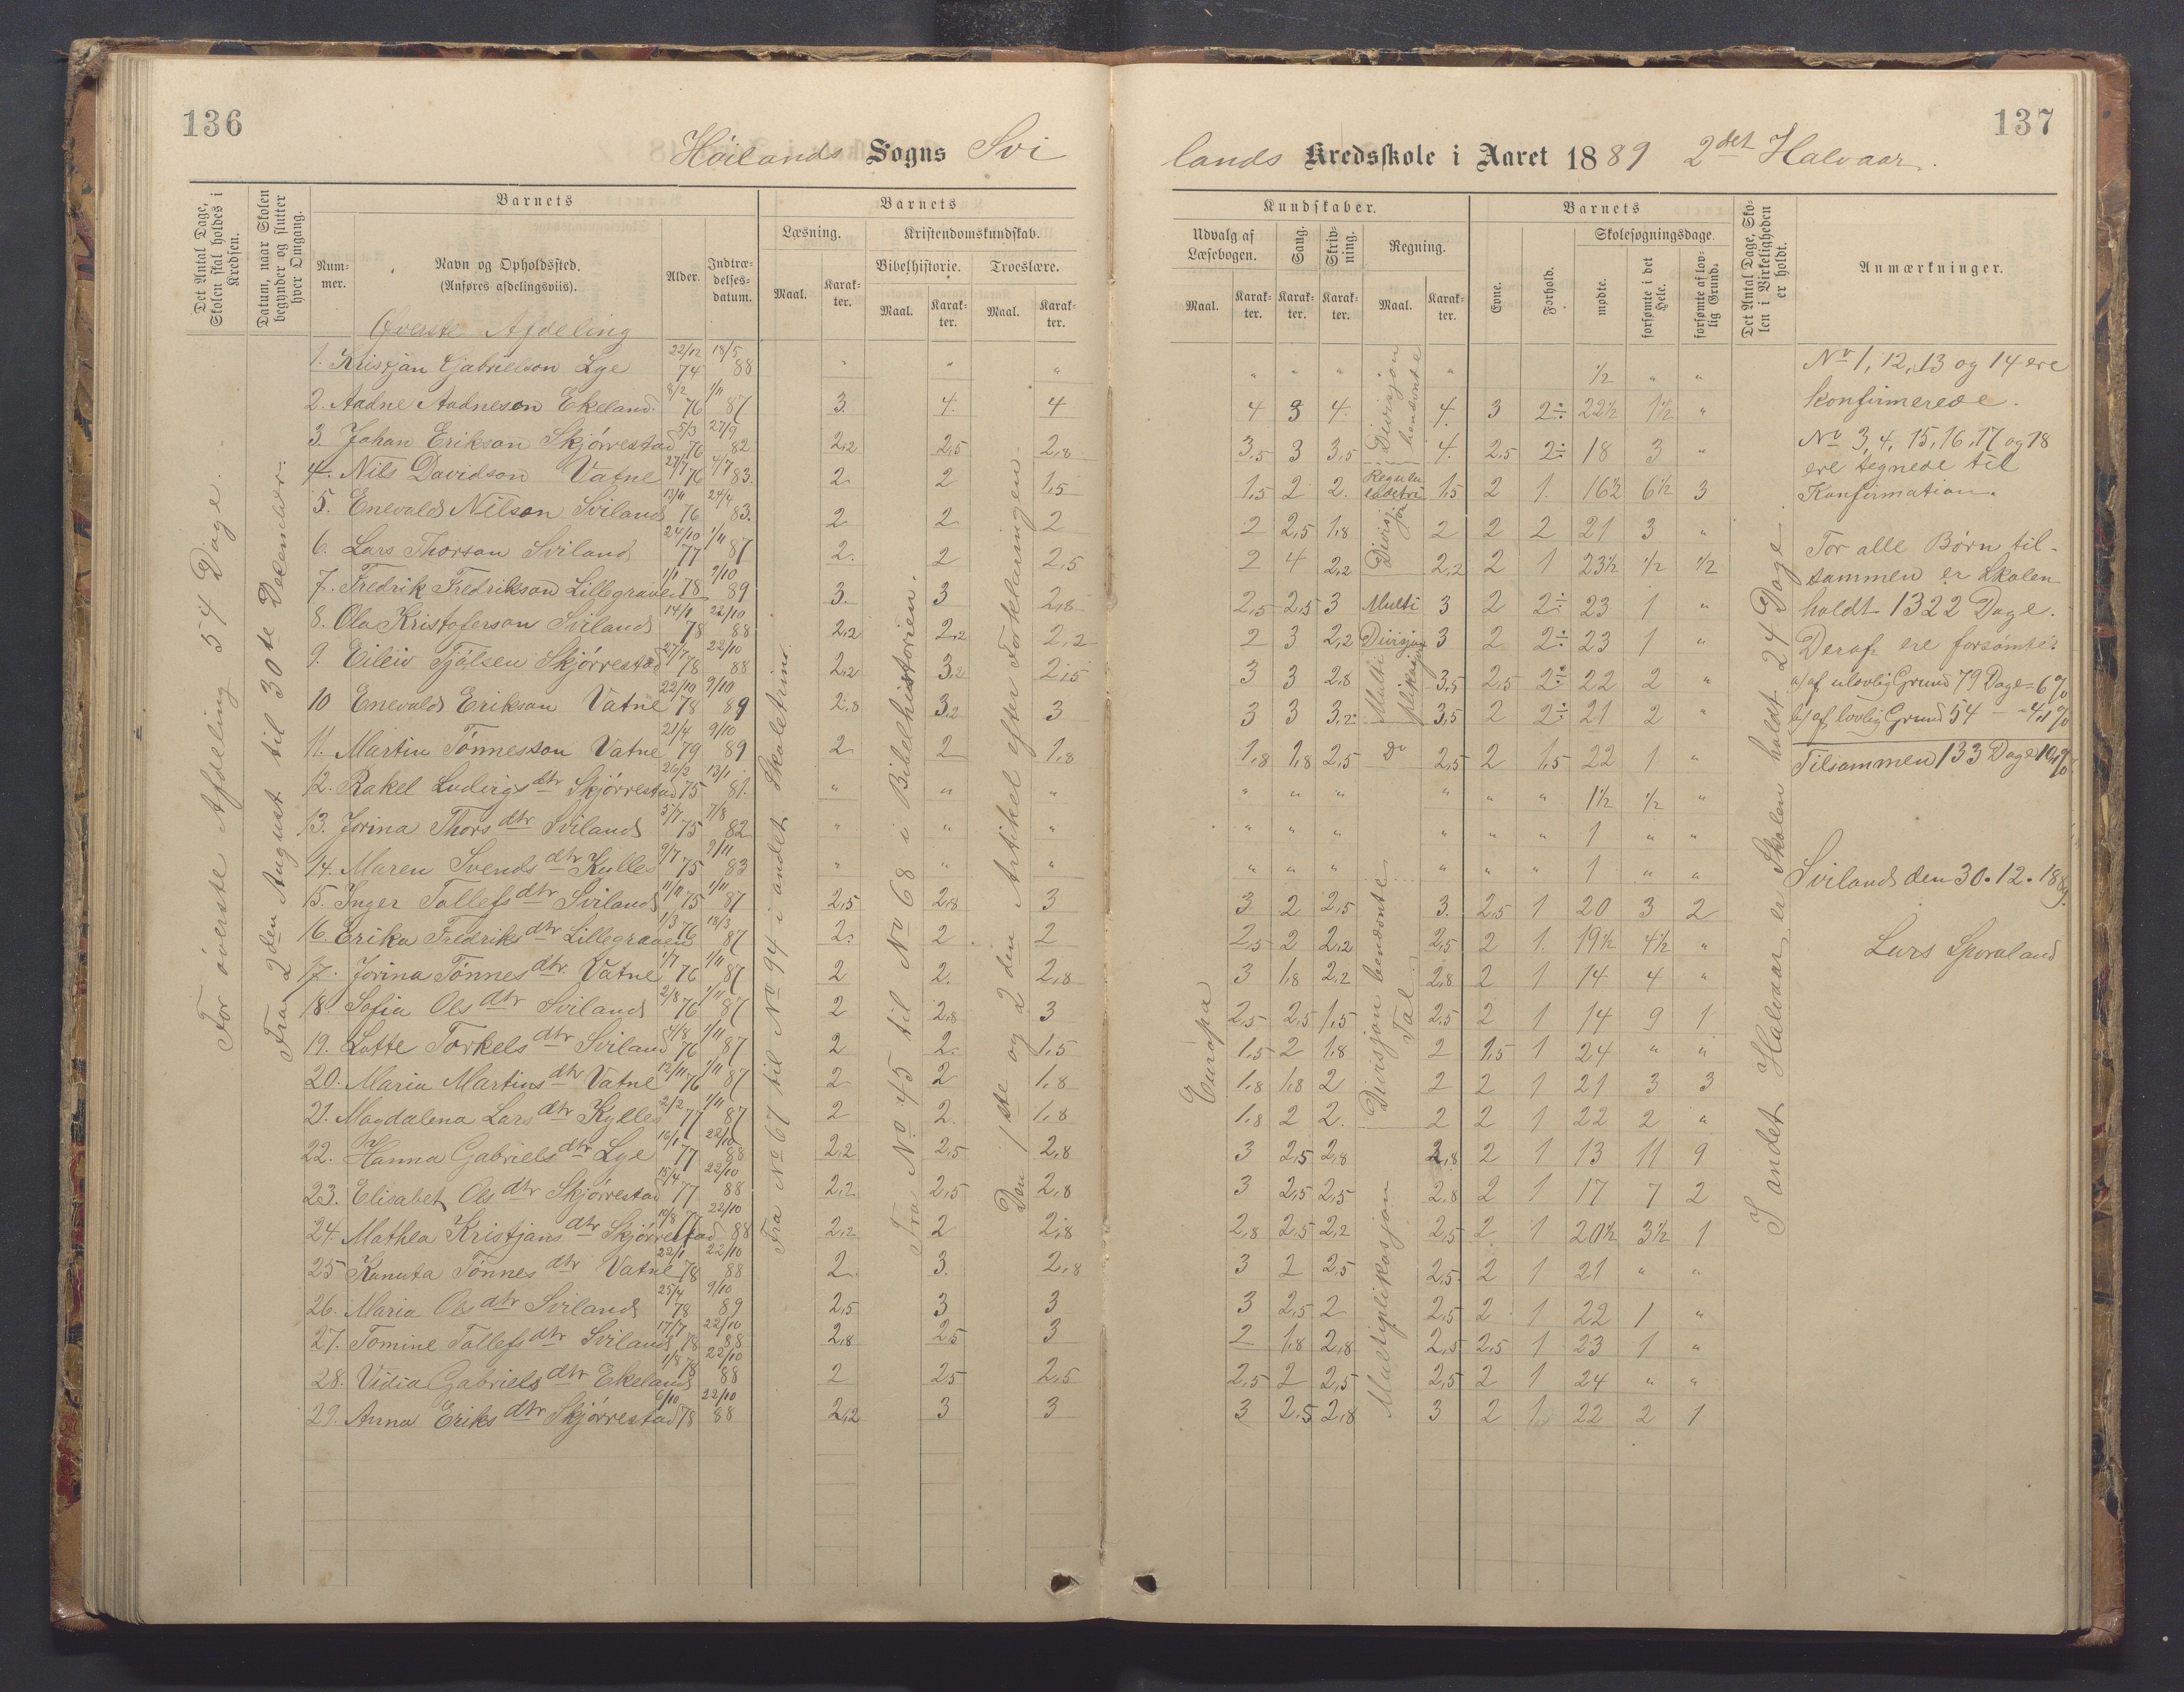 136
137
Høilands Sogns Svi
lands Kredsskole i Aaret 1889 2det Halvaar.
Det Antal Dage, Skolen skal holdes i Kredsen.
Datum, naar Skolen begynder og slutter hver Omgang.
Barnets
Num-mer.
Navn og Opholdssted.
(Anføres afdelingsviis).
Alder.
Indtræ-delses-datum.
Barnets
Læsning.
Kristendomskundskab.
Bibelhistorie.
Troeslære.
Maal.
Karak-ter.
Maal.
Karak-ter.
Maal.
Karak-ter.
Kundskaber.
Udvalg af Læsebogen.
Sang.
Skriv-ning.
Regning.
Maal.
Karak-ter.
Karak-ter.
Karak-ter.
Maal.
Karak-ter.
Barnets
Evne.
Forhold.
Skolesøgningsdage.
mødte.
forsømte i det Hele.
forsømte af lov-lig Grund.
Det Antal Dage, Sko-len i Virkeligheden er holdt.
Anmærkninger.
For øverste Afdeling 54 Dage.
Fra 2den August til 30te December.
Øverste Afdeling
1. Kristjan Gabrielson Lye 22/12 74 18/5 88 " " " " " " " 1/2 " "
2. Aadne Aadneson Ekeland. 8/2 76 1/11 87 3. 4. 4 4 3 4. 4. 3 2÷ 22½ 1½ "
3. Johan Erikson Skjørrestad 5/3 76 27/9 82 2,2 2,5 2,8 3,5 3 3,5 4. 2,5 2÷ 18 3 "
4. Nils Davidson Vatne 27/7 76 4/7 83. 2. 2 1,5 1,5 2 2. 1,5 2 1. 16½ 6½ 3
5. Enevald Nilson Sviland 13/11 76 24/4 83. 2 2 2 2 2,5 1,8 2 2 2 21 3 "
6. Lars Thorson Sviland 24/10 77 1/11 87 2. 2 2,5 2 4 2,2 2,2 2 1 23½ ½ ½
7. Fredrik Fredrikson Lillegraven 1/1 78 9/10 89 3. 3 2,8 2,5 2,5 3 Multi 3 2 2÷ 23 1 "
8. Ola Kristoferson Sviland 14/1 78 22/10 88 2,2 2,2 2,2 2 3 2,2 Divisjon 3 2 2÷ 23 1 "
9. Eileiv Tjølsen Skjørrestad 27/7 78 22/10 88 2,2 3,2 2,5 3 3 2,8 3,5 2,5 2÷ 22 2 "
10 Enevald Erikson Vatne 22/10 78 9/10 89 2,8 3,2 3 3 3 3,2 3,5 2 2÷ 21 2 "
11. Martin Tønnesson Vatne 21/4 79 9/10 89 2 2 1,8 1,8 1,8 2,5 do 2,5 2 1,5 22 1 "
12. Rakel Ludvigs dtr Skjørrestad 26/3 75 13/1 81. " " " " " " " " " 1½ ½ "
13. Jorina Thors dtr Sviland 5/7 75 7/8 82 " " " " " " " " " 1 " "
14. Maren Svends dtr Kylles 9/7 75 9/11 83 " " " " " " " " " 1 " "
15. Inger Tollefs dtr Sviland 11/11 75 1/11 87 2,5 2,8 3 3 2 2,5 3. 2,5 1 20 3 2
16. Erika Fredriks dtr Lillegraven 1/3 76 18/3 87 2. 2 2 2,5 2 2,2 2,5 2 1. 19½ 4½ "
17. Jorina Tønnes dtr. Vatne 1/7 76 1/11 87 2 2. 2,8 3 1,8 2,2 2,8 2 1 14 4 "
18. Sofia Ols dtr Sviland 2/8 76 1/11 87 2 2,8 3 2,5 2,5 1,5 2,5 2 1 14 9 1
19. Lotte Torkels dtr Sviland 4/8 76 1/11 87 2 2. 1,5 1,5 2 1,8 2 1,5 1 24 " "
20. Maria Martins dtr Vatne 12/11 76 1/11 87 2 2 1,8 1,8 1,8 2 2 2 1 21 3 3
21. Magdalena Lars dtr Kylles 2/2 77 1/11 87 2 2. 1,8 1,8 2 2. 2 2 1 22 2 "
22. Hanna Gabriels dtr Lye 16/1 77 22/10 88 2,2 2,5 2,8 3 2,5 2,8 2,8 2 1 13 11 9
23. Elisabet Ols dtr Skjørrestad 15/4 77 22/10 88 2,2 2,5 2,8 3 2,5 2,5 2,8 2 1 17 7 2
24. Mathea Kristjans dtr Skjørrestad 10/8 77 22/10 88 2,2 2 2,8 2,8 2,5 2,2 2,5 2 1 20½ 3½ 1
25 Kanuta Tønnes dtr Vatne 22/1 78 22/10 88 2. 3. 2,8 3 2 2,5 2,5 2 1 21 " "
26. Maria Ols dtr Sviland 25/4 78 9/10 89 2,5 3 3 3 2,5 2 2,5 2 1 22 1 "
27. Tomine Tollefs dtr Sviland 17/7 78 22/10 88 2,8 2,5 3 2 1,8 2,8 2,5 2,5 1 23 1 "
28. Vidia Gabriels dtr Ekeland 1/8 78 22/10 88 2 2,5 2,5 2,5 2 2,5 2,5 2 1 24 " "
29. Anna Eriks dtr Skjørrestad 6/10 78 22/10 88 2,2 3 3 3 2,5 2,8 3 2 1 22 2 1
Fra No 67 til No 94 i andet Skoletrin.
Fra No 45 til No 68 i Bibelhistorien.
Den 1ste og 2den Artikel efter Forklaringen.
Europa
Divisjon benævnte
Reguladetri
Divisjon
Multiplikasjon
Divisjon benævnte Tal
Multiplikasjon
I andet Halvaar er Skolen holdt 24 Dage.
No 1, 12, 13 og 14 ere
konfirmerede.
No 3, 4, 15, 16, 17 og 18
ere tegnede til
Konfirmation.
For alle Børn til-
sammen er Skolen
holdt 1322 Dage.
Deraf ere forsømte:
a) af ulovlig Grund 79 Dage = 6%
b) af lovlig Grund 54 — = 4,1%
Tilsammen 133 Dage 10,1%
Sviland den 30. 12. 1889.
Lars Sporaland